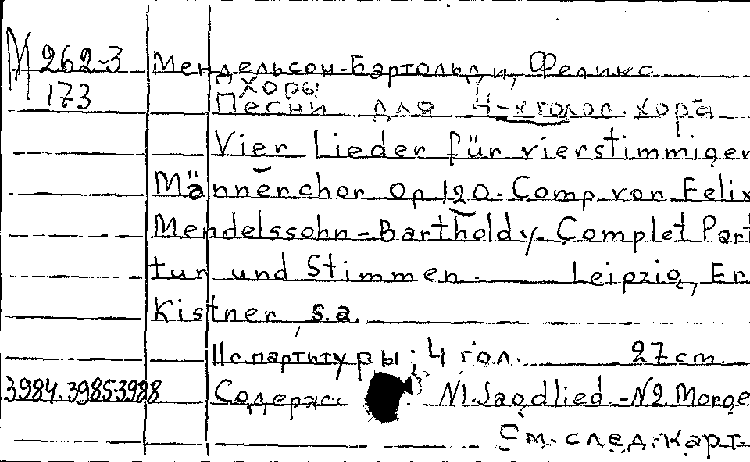 М 262-3 Мендельсон-Бартольди, Феликс
Хоры
173 Песни для 4-х голос. хора
Vier Lieder für vierstimmigen
Männerchor Op 120. Comp von Felix
Mendelssohn-Bartholdy. Complet Part
tur und Stimmen. Leipzig, Er.
Kistner, s.a.
11с партитуры; 4 гол. 27 cm
3984.39853988 Содерж. N1 Jagdlied - N2 Morge
См. след. карт